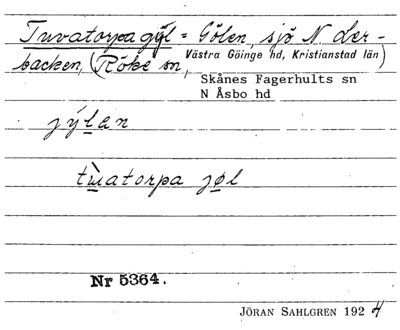 Tuvatorpa gýl = Gölen, sjö N Ler-
backen, (Röke sn, Västra Göinge hd, Kristianstad län)
Skånes Fagerhults sn
N Åsbo hd
jýlan
tùuatorpa jøl
Nr 5364.
JÖRAN SAHLGREN 1924